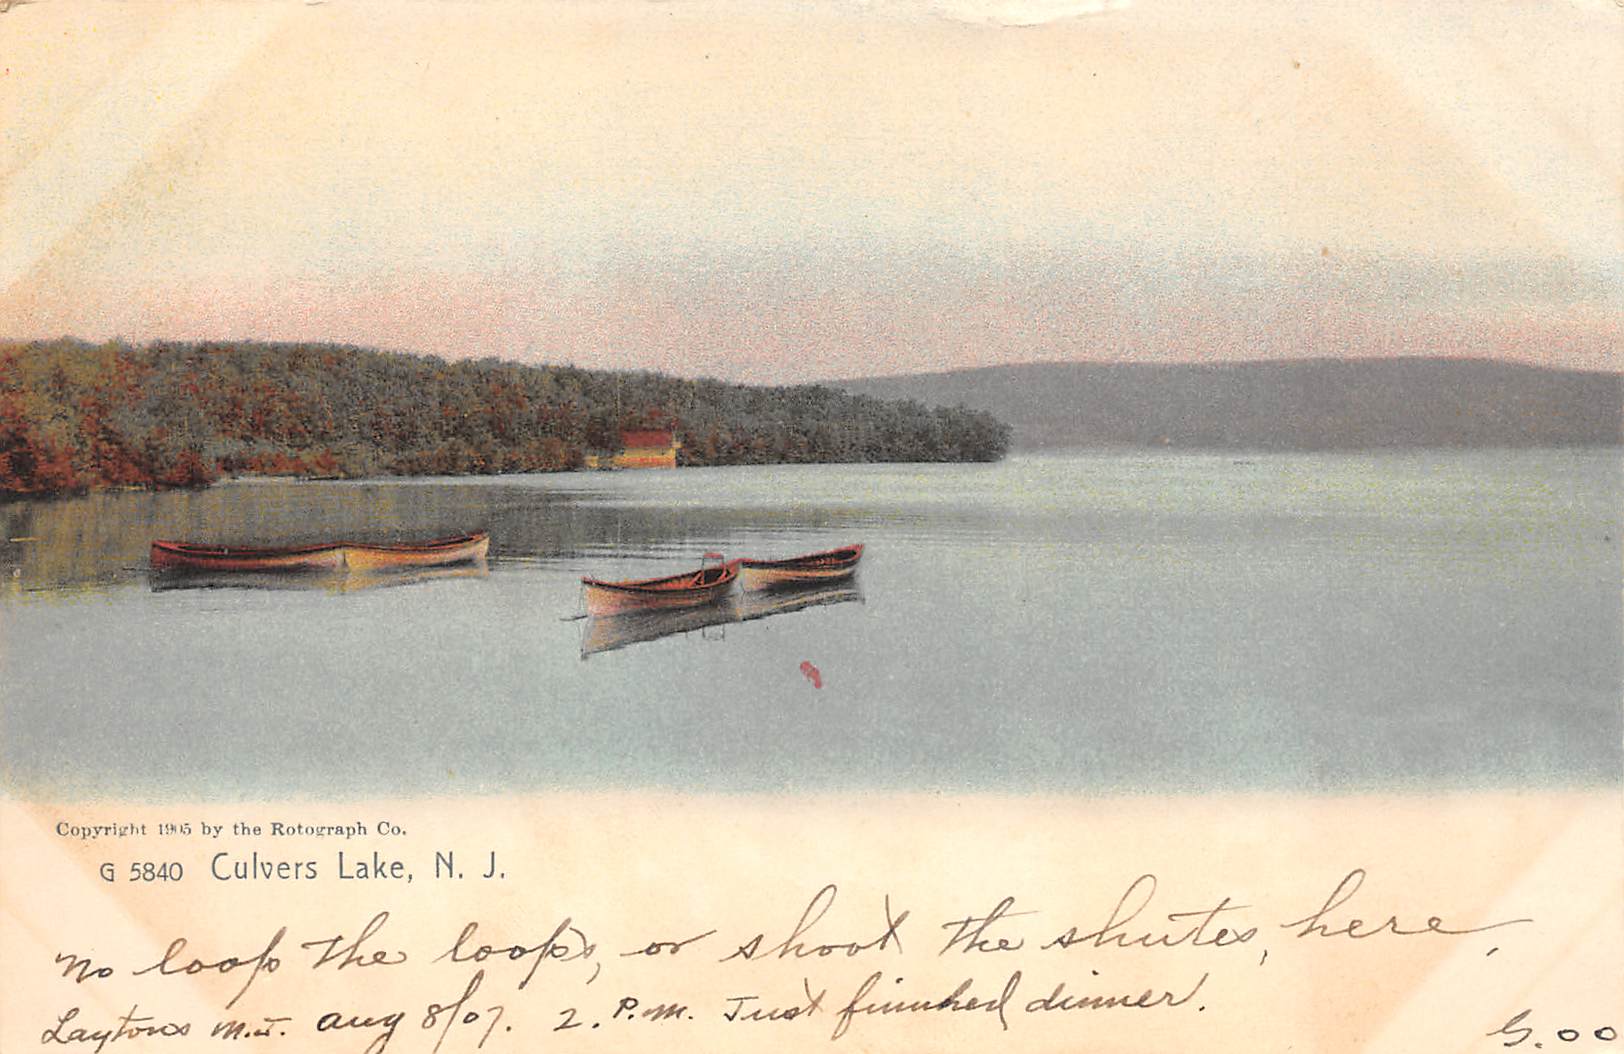 Copyright 1905 by the Rotograph Co.
G 5840 Culvers Lake, N. J.
No loop the loops, or shoot the shutes, here,
Laytons N.J. Aug 8/07. 2. P.M. Just finished dinner.
G. oo